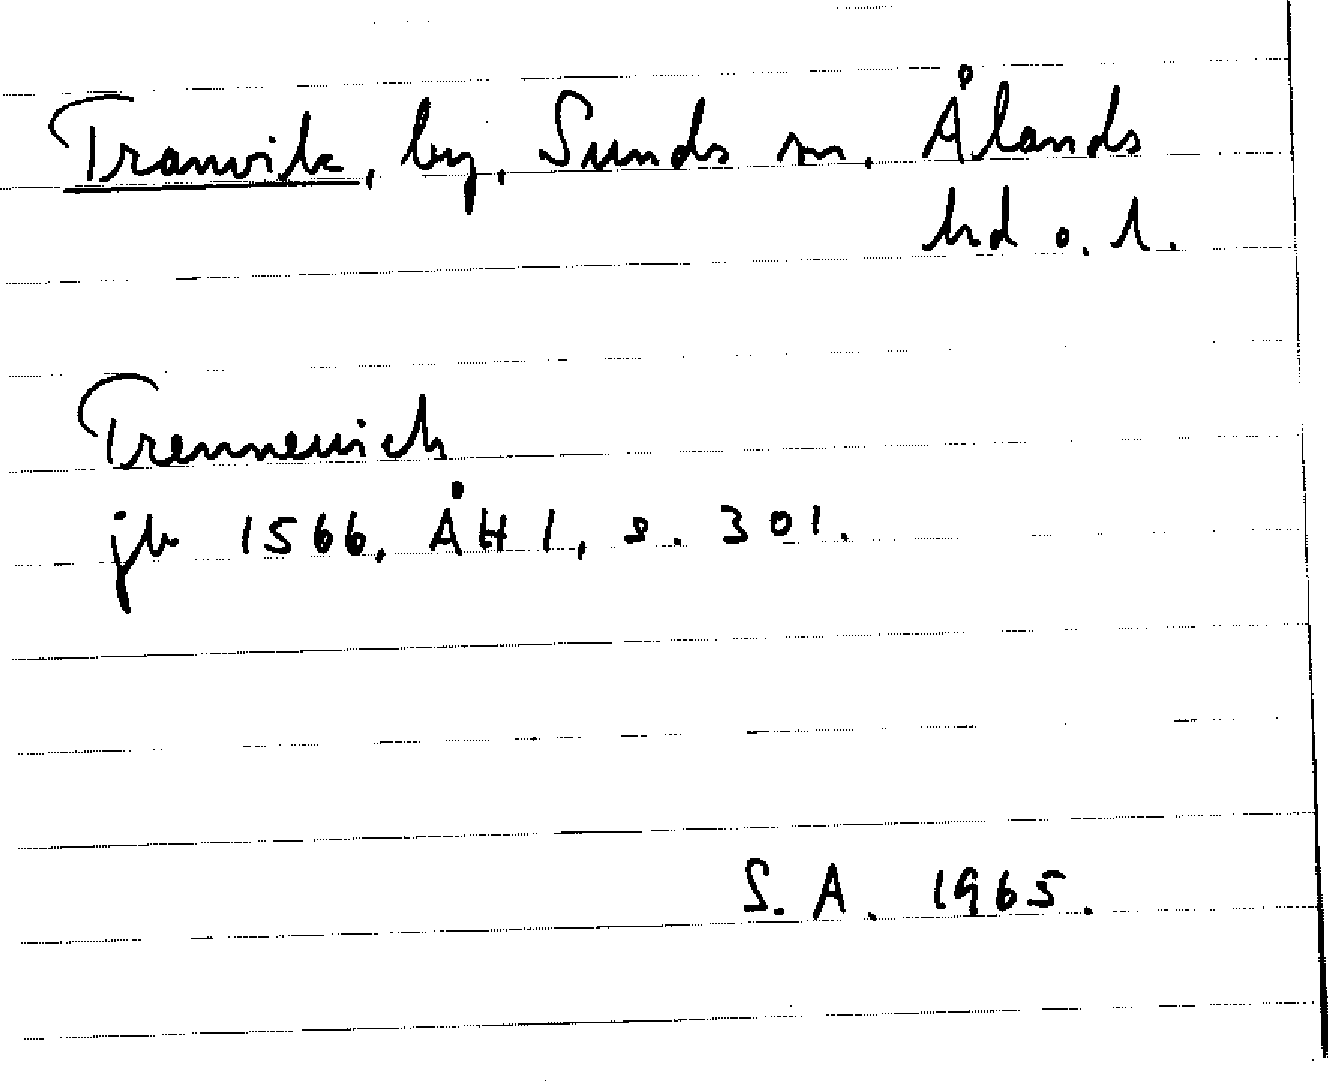 Tranvik, by, Sunds sn. Ålands
hd o. l.
Trennewich
jb 1566, ÅH 1, s. 301.
S. A. 1965.